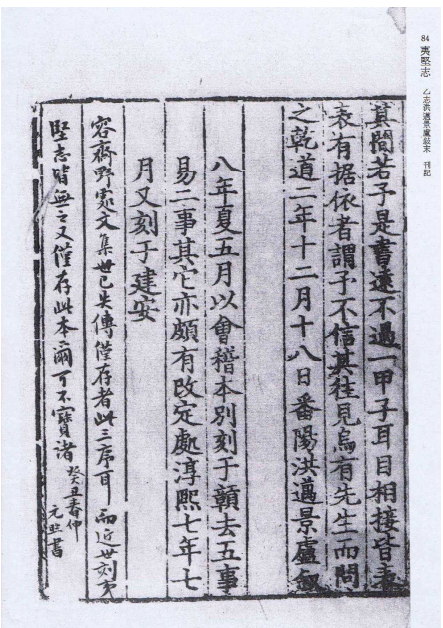 84 夷堅志 乙志洪邁景盧敍末 刊記
其間若予是書遠不過一甲子耳目相接皆表
表有据依者謂予不信其往見烏有先生而問
之乾道二年十二月十八日番陽洪邁景盧敍
八年夏五月以會稽本別刻于贛去五事
易二事其它亦頗有改定處淳熙七年七
月又刻于建安
容齋野處文集世已失傳僅存者此三序耳 而近世刻夷
堅志皆無之又僅存此本爾可不寶諸
癸丑春仲
元照書